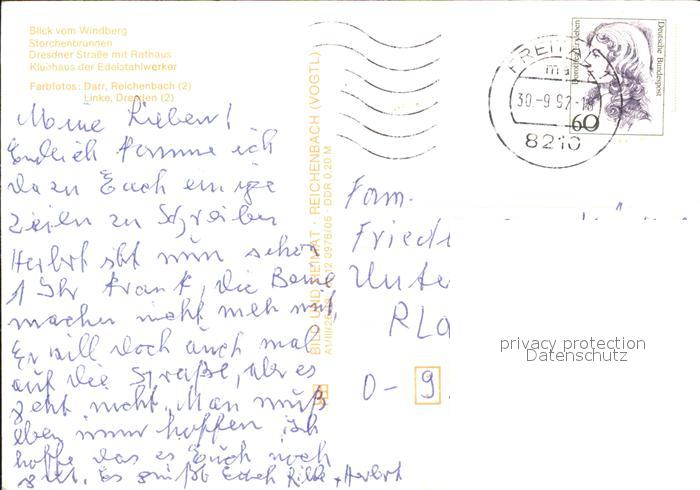 Blick vom Windberg
Storchenbrunnen
Dresdner Straße mit Rathaus
Klubhaus der Edelstahlwerker
Farbfotos: Darr, Reichenbach (2)
Linke, Dresden (2)
Meine Lieben!
Endlich komme ich
dazu Euch einige
Zeilen zu Schreiben
Herbert ist nun schon
1 Jhr krank, die Beine
machen nicht meh mit,
Er will doch auch mal
auf die Straße, aber es
geht nicht. Man muß
eben immer hoffen ich
hoffe das es Euch noch
gut. Es grüßt Euch + Herbert
BILD UND HEIMAT · REICHENBACH (VOGTL)
DDR 0,20 M
FREITAL
30-9.92-18
8210
Deutsche Bundespost
60
Fam.
Friedr
Unte
D - 9
privacy protection
Datenschutz